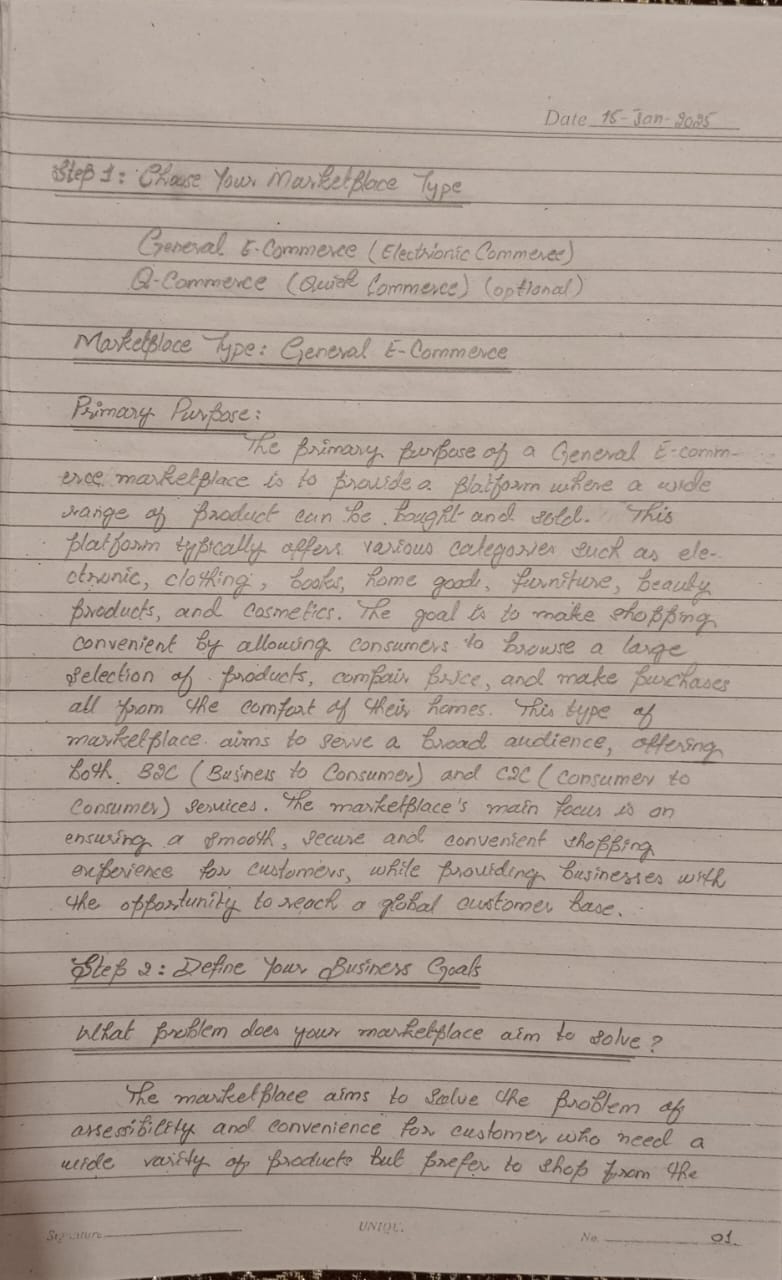 Date 15-Jan-2025
Step 1: Choose Your Marketplace Type
General E-Commerce (Electrionic Commerce)
Q-Commerce (Quick Commerce) (optional)
Marketplace Type: General E-Commerce
Primary Purpose:
The primary purpose of a General E-comm-
erce marketplace is to provide a platform where a wide
range of product can be bought and sold. This
platform typically offers various categories such as ele-
ctronic, clothing, books, home good, furniture, beauty
products, and cosmetics. The goal is to make shopping
convenient by allowing consumers to browse a large
selection of products, compair price, and make purchases
all from the comfort of their homes. This type of
marketplace aims to serve a broad audience, offering
both B2C (Business to Consumer) and C2C (consumer to
Consumer) services. The marketplace's main focus is on
ensuring a smooth, secure and convenient shopping
experience for customers, while providing businesses with
the opportunity to reach a global customer base.
Step 2: Define Your Business Goals
What problem does your marketplace aim to solve?
The marketplace aims to solve the problem of
assessibility and convenience for customer who need a
wide varity of products but prefer to shop from the
Signature
UNIQUE
No. 01